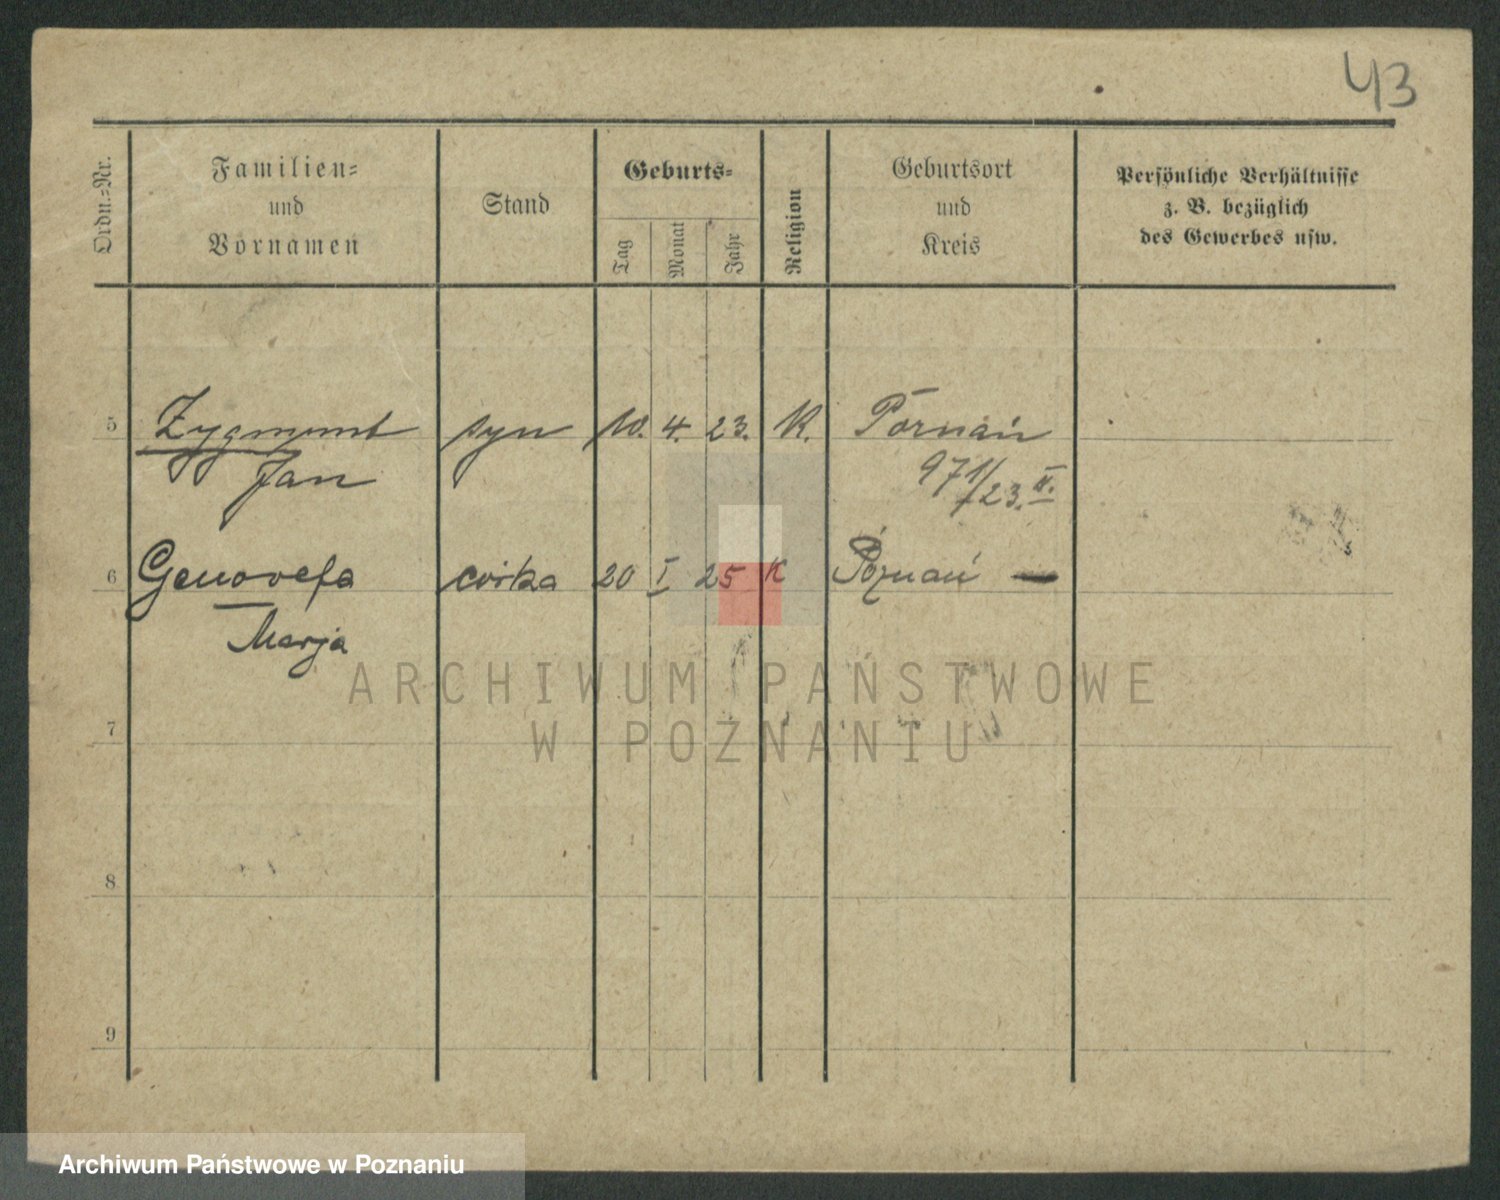 43
Ordn.-Nr.
Familien-
und
Vornamen
Stand
Geburts-
Tag
Monat
Jahr
Religion
Geburtsort
und
Kreis
Persönliche Verhältnisse
z. B. bezüglich
des Gewerbes usw.
5 Zygmunt syn 10. 4. 23. K. Poznań
Jan 971/23. II.
6 Genovefa córka 20 I 25 K Poznań —
Marja
7
8
9
ARCHIWUM PAŃSTWOWE
W POZNANIU
Archiwum Państwowe w Poznaniu